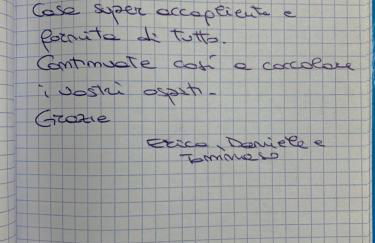 Casa super accogliente e
fornita di tutto.
Continuate così a coccolare
i vostri ospiti.
Grazie
Erica, Daniele e
Tommaso